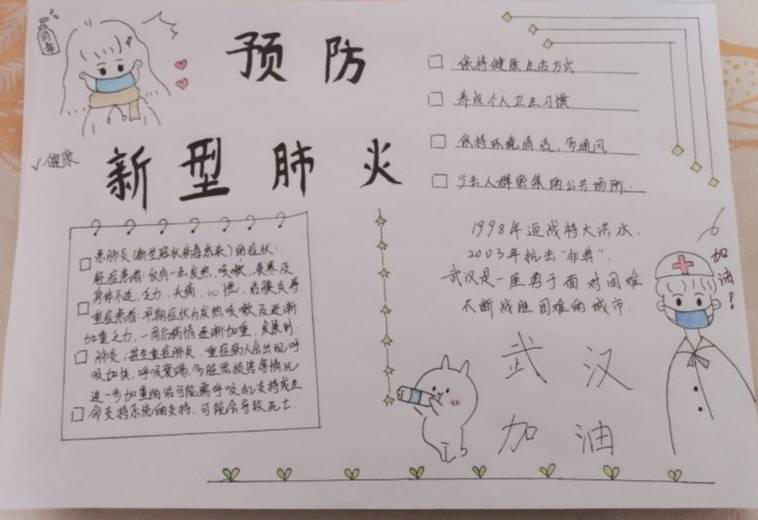 消毒
预防
新型肺炎
√健康
保持健康生活方式
养成个人卫生习惯
保持环境清洁,多通风
少去人群密集的公共场所.
患肺炎(新型冠状病毒感染)的症状:
轻症患者:仅有一点发热、咳嗽、畏寒及
身体不适,乏力、头痛、心慌、结膜炎等
重症患者:早期症状为发热咳嗽及逐渐
加重乏力,一周后病情逐渐加重,发展到
肺炎,甚至重症肺炎.重症病人会出现呼
吸加快,呼吸窘迫,多脏器损害等情况
进一步加重的话可能需呼吸机支持或生
命支持系统的支持,可能会导致死亡.
1998年迎战特大洪水.
2003年抗击"非典".
武汉是一座勇于面对困难
不断战胜困难的城市.
加油!
武汉
加油